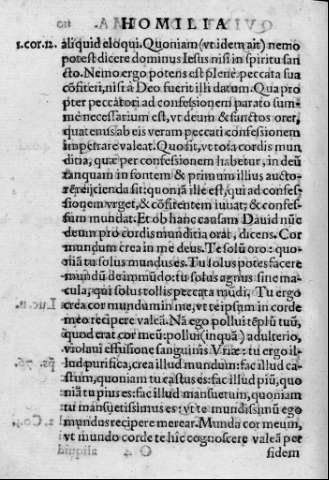 HOMILIA
1.cor.12. aliquid eloqui. Quoniam (vt idem ait) nemo
potest dicere dominus Iesus nisi in spiritu san
cto. Nemo ergo potens est plenè peccata sua
cōfiteri, nisi à Deo fuerit illi datum. Qua pro
pter peccatori ad confessionem parato sum-
mè necessarium est, vt deum & sanctos oret,
quatenus ab eis veram peccati confessionem
impetrare valeat. Quo fit, vt tota cordis mun
ditia, quæ per confessionem habetur, in deū
tanquam in fontem & primum illius aucto-
rē reijcienda sit: quoniā ille est, qui ad confes-
sionem vrget, & cōfitentem iuuat; & confes-
sum mundat. Et ob hanc causam Dauid nūc
deum pro cordis munditia orat, dicens. Cor
mundum crea in me deus. Te solū oro: quo-
niā tu solus mundus es. Tu solus potes facere
mundū de immūdo: tu solus agnus sine ma-
cula, qui solus tollis peccata mūdi. Tu ergo
crea cor mundum in me, vt te ipsum in corde
meo recipere valeā. Nā ego pollui tēplū tuū,
quod erat cor meū: pollui (inquā) adulterio,
violaui effusione sanguinis Vriæ: tu ergo il-
lud purifica, crea illud mundum: fac illud ca-
stum, quoniam tu castus es: fac illud piū, quo
niā tu pius es: fac illud mansuetum, quoniam
tu mansuetissimus es: vt te mundissimū ego
mundus recipere merear. Munda cor meum,
vt mundo corde te hîc cognoscere valeā per
fidem